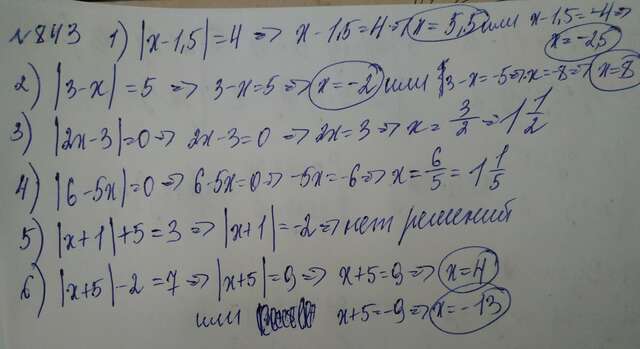 №843 1) |x-1,5|=4 => x-1,5=4 => x=5,5 или x-1,5=-4 =>
x=-2,5
2) |3-x|=5 => 3-x=5 => x=-2 или 3-x=-5 => -x=-8 => x=8
3) |2x-3|=0 => 2x-3=0 => 2x=3 => x=3/2=1 1/2
4) |6-5x|=0 => 6-5x=0 => -5x=-6 => x=6/5=1 1/5
5) |x+1|+5=3 => |x+1|=-2 => нет решений
6) |x+5|-2=7 => |x+5|=9 => x+5=9 => x=4
или x+5=-9 => x=-13